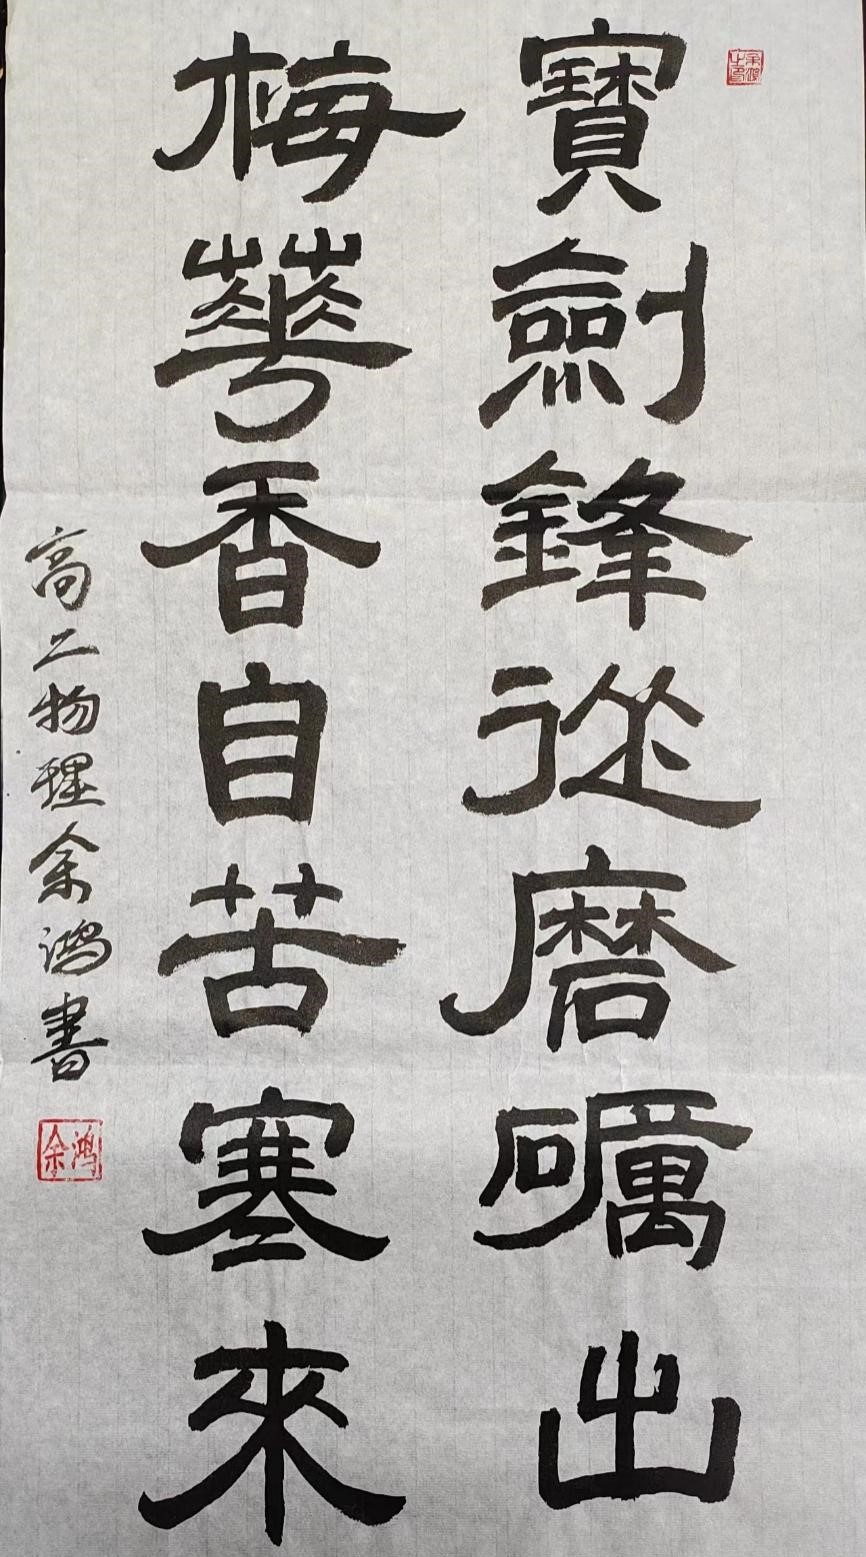 寶劍鋒從磨礪出
梅華香自苦寒來
高二物理余鴻書
余鸿